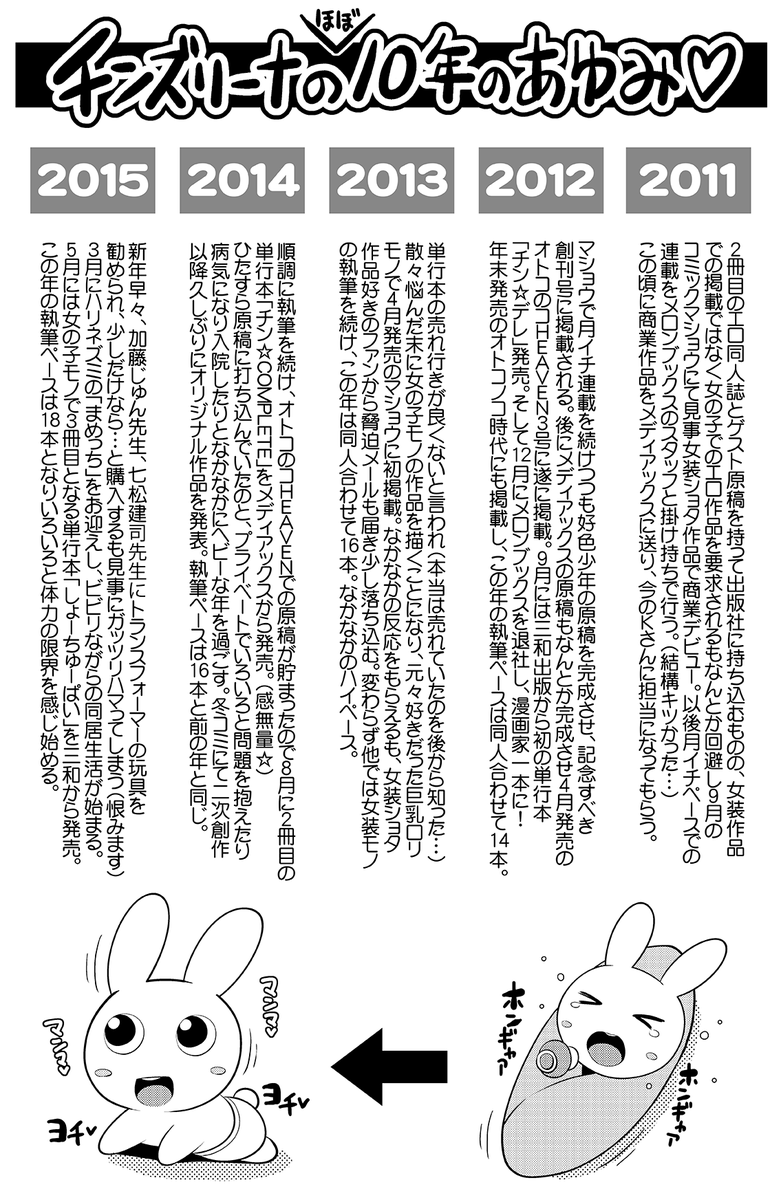 ほぼ
チンズリーナの10年のあゆみ♡
2011
2冊目のエロ同人誌とゲスト原稿を持って出版社に持ち込むものの、女装作品
での掲載ではなく女の子でのエロ作品を要求されるもなんとか回避し9月の
コミックマショウにて見事女装ショタ作品で商業デビュー。以後月イチペースでの
連載をメロンブックスのスタッフと掛け持ちで行う。(結構キツかった…)
この頃に商業作品をメディアックスに送り、今のKさんに担当になってもらう。
2012
マショウで月イチ連載を続けつつも好色少年の原稿を完成させ、記念すべき
創刊号に掲載される。後にメディアックスの原稿もなんとか完成させ4月発売の
オトコのコHEAVEN3号に遂に掲載。9月には三和出版から初の単行本
「チン☆デレ」発売。そして12月にメロンブックスを退社し、漫画家一本に!
年末発売のオトコノコ時代にも掲載し、この年の執筆ペースは同人合わせて14本。
2013
単行本の売れ行きが良くないと言われ(本当は売れていたのを後から知った…)
散々悩んだ末に女の子モノの作品を描くことになり、元々好きだった巨乳ロリ
モノで4月発売のマショウに初掲載。なかなかの反応をもらえるも、女装ショタ
作品好きのファンから脅迫メールも届き少し落ち込む。変わらず他では女装モノ
の執筆を続け、この年は同人合わせて16本。なかなかのハイペース。
2014
順調に執筆を続け、オトコのコHEAVENでの原稿が貯まったので8月に2冊目の
単行本「チン☆COMPLETE」をメディアックスから発売。(感無量☆)
ひたすら原稿に打ち込んでいたのと、プライベートでいろいろと問題を抱えたり
病気になり入院したりとなかなかにヘビーな年を過ごす。冬コミにて二次創作
以降久しぶりにオリジナル作品を発表。執筆ペースは16本と前の年と同じ。
2015
新年早々、加藤じゅん先生、七松建司先生にトランスフォーマーの玩具を
勧められ、少しだけなら…と購入するも見事にガッツリハマってしまう(恨みます)
3月にハリネズミの「まめっち」をお迎えし、ビビりながらの同居生活が始まる。
5月には女の子モノで3冊目となる単行本「しょーちゅーぱい」を三和から発売。
この年の執筆ペースは18本となりいろいろと体力の限界を感じ始める。
ホンギャァ
ホンギャァ
マンマ♡
マンマ♡
ヨチ♥
ヨチ♥